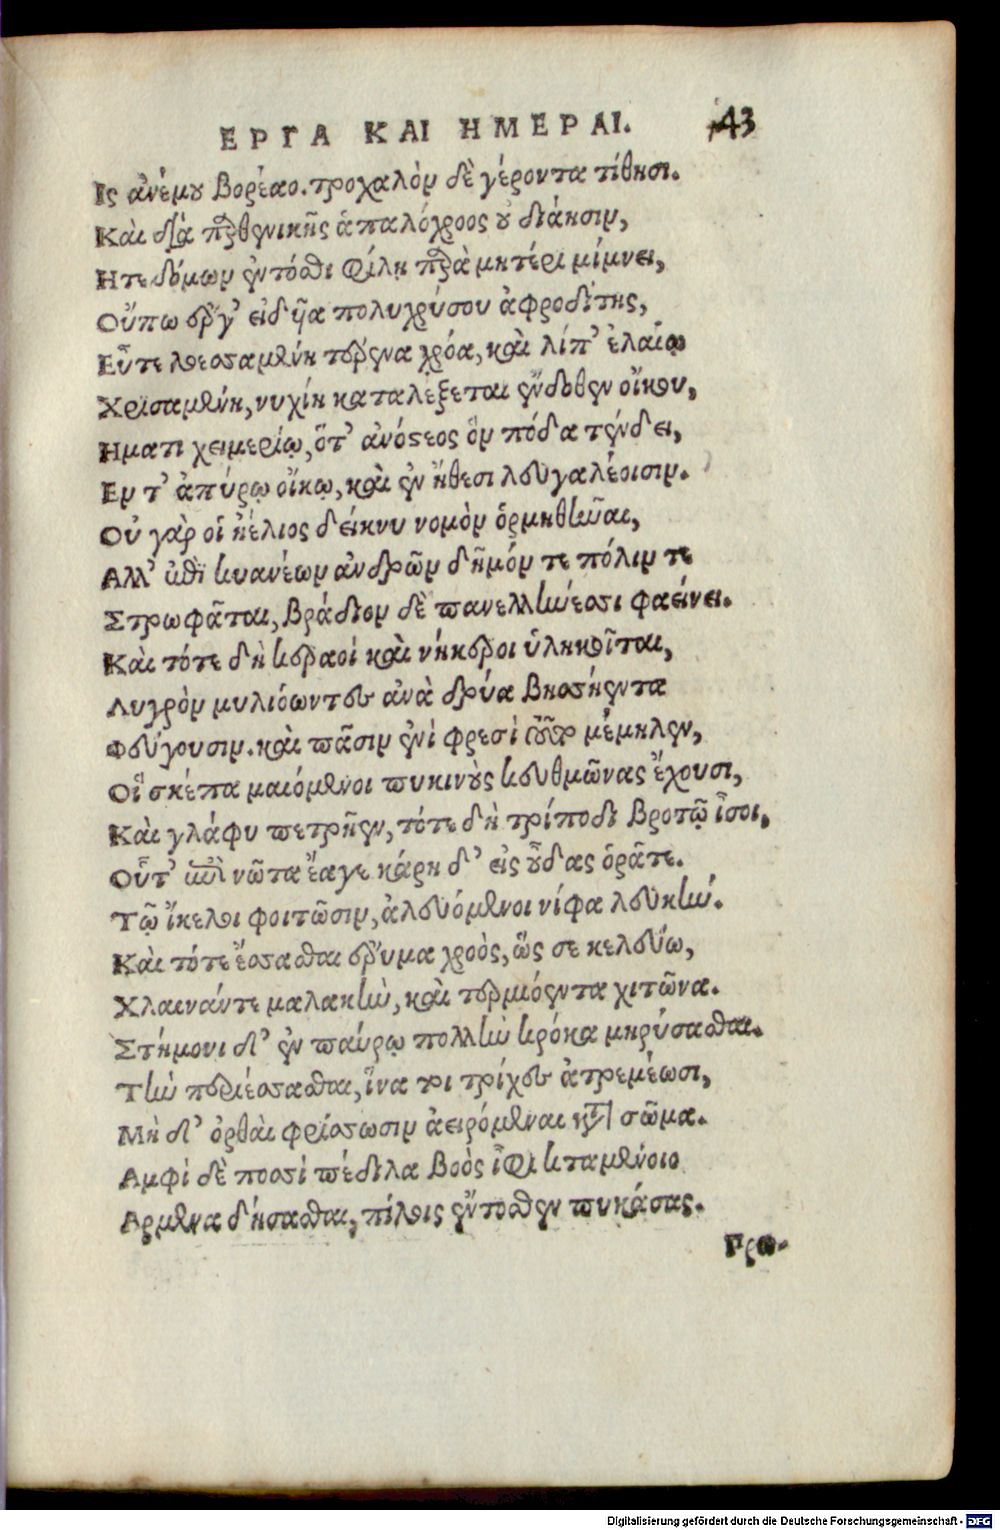 ΕΡΓΑ ΚΑΙ ΗΜΕΡΑΙ. 43
Ις ἀνέμου Βορέαο. τροχαλὸν δὲ γέροντα τίθησι.
Καὶ διὰ παρθενικῆς ἁπαλόχροος οὐ διάησιν,
Ητε δόμων ἐντόσθι φίλῃ παρὰ μητέρι μίμνει,
Οὔπω ἔργ' εἰδῆα πολυχρύσου ἀφροδίτης,
Εὖτε λοεσσαμένη τέρενα χρόα, καὶ λίπ' ἐλαίῳ
Χρισαμένη, νυχίη καταλέξεται ἔνδοθεν οἴκου,
Ηματι χειμερίῳ, ὅτ' ἀνόστεος ὃν πόδα τένδει,
Εν τ' ἀπύρῳ οἴκῳ, καὶ ἐν ἤθεσι λευγαλέοισιν.
Οὐ γὰρ οἱ ἠέλιος δείκνυ νομὸν ὁρμηθῆναι,
Αλλ' ἐπὶ κυανέων ἀνδρῶν δῆμόν τε πόλιν τε
Στρωφᾶται, βράδιον δὲ πανελλήνεσσι φαείνει.
Καὶ τότε δὴ κεραοὶ καὶ νήκεροι ὑληκοῖται,
Λυγρὸν μυλιόωντες ἀνὰ δρύα βησσήεντα
Φεύγουσιν. καὶ πᾶσιν ἐνὶ φρεσὶ τοῦτο μέμηλεν,
Οἳ σκέπα μαιόμενοι πυκινοὺς κευθμῶνας ἔχουσι,
Καὶ γλάφυ πετρῆεν, τότε δὴ τρίποδι βροτῷ ἶσοι,
Οὗτ' ἐπὶ νῶτα ἔαγε κάρη δ' εἰς οὖδας ὁρᾶτε.
Τῷ ἴκελοι φοιτῶσιν, ἀλευόμενοι νίφα λευκήν.
Καὶ τότε ἕσσασθαι ἔρυμα χροὸς, ὥς σε κελεύω,
Χλαινάντε μαλακὴν, καὶ τερμιόεντα χιτῶνα.
Στήμονι δ' ἐν παύρῳ πολλὴν κρόκα μηρύσασθαι.
Τὴν περιέσσασθαι, ἵνα τοι τρίχες ἀτρεμέωσι,
Μὴ δ' ὀρθαὶ φρίσσωσιν ἀειρόμεναι κατὰ σῶμα.
Αμφὶ δὲ ποσσὶ πέδιλα βοὸς ἶφι κταμένοιο
Αρμενα δήσασθαι, πίλοις ἔντοσθεν πυκάσας.
Προ-
Digitalisierung gefördert durch die Deutsche Forschungsgemeinschaft - DFG